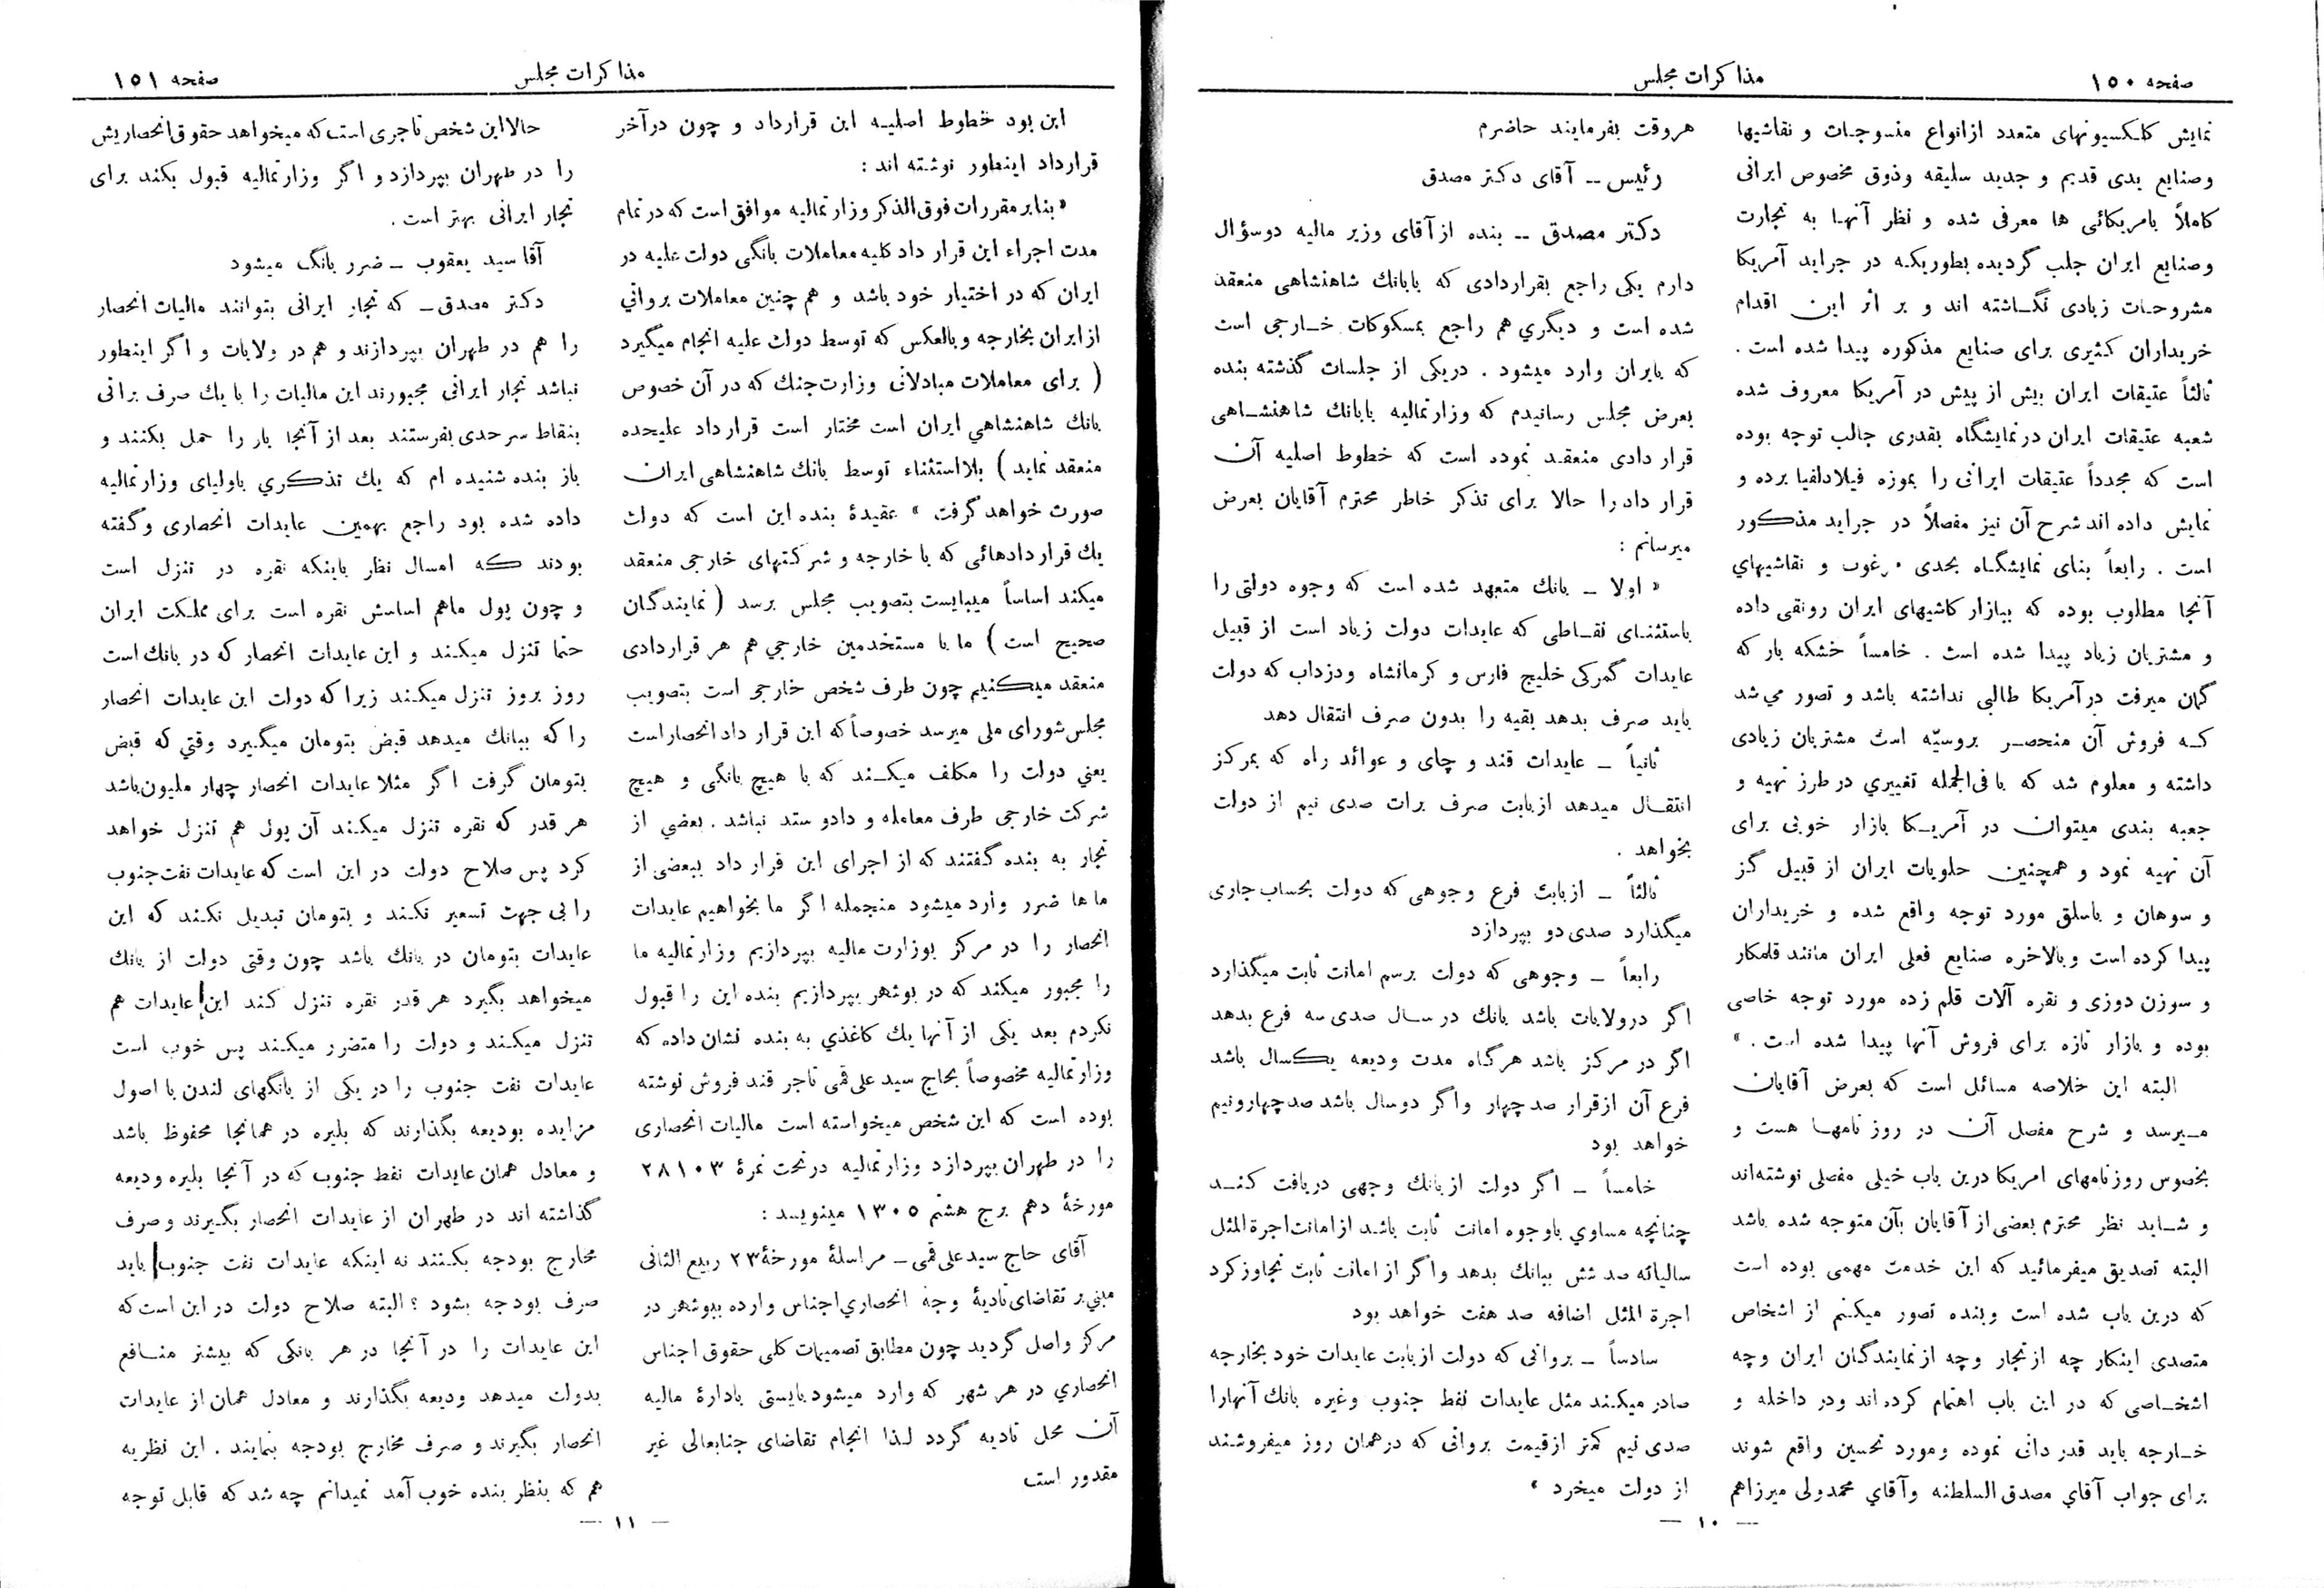 صفحه ۱۵۰
مذاکرات مجلس
نمایش کلکسیونهای متعدد از انواع منسوجات و نقاشیها
وصنایع یدی قدیم و جدید سلیقه وذوق مخصوص ایرانی
کاملاً بامریکائی ها معرفی شده و نظر آنها به تجارت
وصنایع ایران جلب گردیده بطوریکه در جراید آمریکا
مشروحات زیادی نگاشته اند و بر اثر این اقدام
خریداران کثیری برای صنایع مذکوره پیدا شده است .
ثالثاً عتیقات ایران بیش از پیش در آمریکا معروف شده
شعبه عتیقات ایران در نمایشگاه بقدری جالب توجه بوده
است که مجدداً عتیقات ایرانی را بموزه فیلادلفیا برده و
نمایش داده اند شرح آن نیز مفصلاً در جراید مذکور
است . رابعاً بنای نمایشگاه بحدی مرغوب و نقاشیهاي
آنجا مطلوب بوده که ببازار کاشیهای ایران رونقی داده
و مشتریان زیاد پیدا شده است . خامساً خشکه بار که
گمان میرفت در آمریکا طالبی نداشته باشد و تصور می شد
که فروش آن منحصر بروسیّه است مشتریان زیادی
داشته و معلوم شد که با فی الجمله تغییري در طرز تهیه و
جعبه بندی میتوان در آمریکا بازار خوبی برای
آن تهیه نمود و همچنین حلویات ایران از قبیل گز
و سوهان و باسلق مورد توجه واقع شده و خریداران
پیدا کرده است و بالاخره صنایع فعلی ایران مانند قلمکار
و سوزن دوزی و نقره آلات قلم زده مورد توجه خاصی
بوده و بازار تازه برای فروش آنها پیدا شده است . »
البته این خلاصه مسائل است که بعرض آقایان
میرسد و شرح مفصل آن در روز نامها هست و
بخصوص روزنامهای امریکا درین باب خیلی مفصلی نوشته اند
و شاید نظر محترم بعضی از آقایان بآن متوجه شده باشد
البته تصدیق میفرمائید که این خدمت مهمی بوده است
که درین باب شده است و بنده تصور میکنم از اشخاص
متصدی اینکار چه از تجار وچه از نمایندگان ایران وچه
اشخاصی که در این باب اهتمام کرده اند ودر داخله و
خارجه باید قدر دانی نموده ومورد تحسین واقع شوند
برای جواب آقاي مصدق السلطنه وآقاي محمدولی میرزاهم
هروقت بفرمایند حاضرم
رئیس -- آقای دکتر مصدق
دکتر مصدق -- بنده از آقای وزیر مالیه دوسؤال
دارم یکی راجع بقراردادی که بابانك شاهنشاهی منعقد
شده است و دیگري هم راجع بمسکوکات خارجی است
که بایران وارد میشود . دریکی از جلسات گذشته بنده
بعرض مجلس رسانیدم که وزارتمالیه بابانك شاهنشاهی
قرار دادی منعقد نموده است که خطوط اصلیه آن
قرار داد را حالا برای تذکر خاطر محترم آقایان بعرض
میرسانم :
« اولا - بانك متعهد شده است که وجوه دولتی را
باستثنای نقاطی که عایدات دولت زیاد است از قبیل
عایدات گمرکی خلیج فارس و کرمانشاه ودزداب که دولت
باید صرف بدهد بقیه را بدون صرف انتقال دهد
ثانیاً - عایدات قند و چای و عوائد راه که بمرکز
انتقال میدهد از بابت صرف برات صدی نیم از دولت
بخواهد .
ثالثاً - از بابت فرع وجوهی که دولت بحساب جاری
میگذارد صدی دو بپردازد
رابعاً - وجوهی که دولت برسم امانت ثابت میگذارد
اگر درولایات باشد بانك در سال صدی سه فرع بدهد
اگر در مرکز باشد هرگاه مدت ودیعه یکسال باشد
فرع آن از قرار صد چهار واگر دوسال باشد صد چهارونیم
خواهد بود
خامساً - اگر دولت از بانك وجهی دریافت کند
چنانچه مساوي باوجوه امانت ثابت باشد از امانت اجرة المثل
سالیانه صد شش ببانك بدهد واگر از امانت ثابت تجاوز کرد
اجرة المثل اضافه صد هفت خواهد بود
سادساً - برواتی که دولت از بابت عایدات خود بخارجه
صادر میکند مثل عایدات نفط جنوب وغیره بانك آنهارا
صدی نیم کمتر از قیمت برواتی که در همان روز میفروشند
از دولت میخرد »
— ۱۰ —
مذاکرات مجلس
صفحه ۱۵۱
این بود خطوط اصلیه این قرارداد و چون در آخر
قرارداد اینطور نوشته اند :
« بنابر مقررات فوق الذکر وزارتمالیه موافق است که در تمام
مدت اجراء این قرار داد کلیه معاملات بانگی دولت علیه در
ایران که در اختیار خود باشد و هم چنین معاملات برواتي
از ایران بخارجه وبالعکس که توسط دولت علیه انجام میگیرد
( برای معاملات مبادلاتی وزارت جنك که در آن خصوص
بانك شاهنشاهي ایران است مختار است قرارداد علیحده
منعقد نماید ) بلااستثناء توسط بانك شاهنشاهی ایران
صورت خواهد گرفت » عقیدۀ بنده این است که دولت
یك قراردادهائی که با خارجه و شرکتهای خارجی منعقد
میکند اساساً میبایست بتصویب مجلس برسد ( نمایندگان
صحیح است ) ما با مستخدمین خارجي هم هر قراردادی
منعقد میکنیم چون طرف شخص خارجی است بتصویب
مجلس شورای ملی میرسد خصوصاً که این قرار داد انحصار است
یعني دولت را مکلف میکند که با هیچ بانگی و هیچ
شرکت خارجی طرف معامله و دادو ستد نباشد . بعضي از
تجار به بنده گفتند که از اجرای این قرار داد ببعضی از
ما ها ضرر وارد میشود منجمله اگر ما بخواهیم عایدات
انحصار را در مرکز بوزارت مالیه بپردازیم وزارتمالیه ما
را مجبور میکند که در بوشهر بپردازیم بنده این را قبول
نکردم بعد یکی از آنها یك کاغذي به بنده نشان داده که
وزارتمالیه مخصوصاً بحاج سید علی قمی تاجر قند فروش نوشته
بوده است که این شخص میخواسته است مالیات انحصاری
را در طهران بپردازد وزارتمالیه در تحت نمرۀ ۲۸۱۰۳
مورخۀ دهم برج هشتم ۱۳۰۵ مینویسد :
آقای حاج سید علی قمی - مراسلۀ مورخۀ ۲۳ ربیع الثانی
مبنی بر تقاضای تادیۀ وجه انحصاري اجناس وارده ببوشهر در
مرکز واصل گردید چون مطابق تصمیمات کلی حقوق اجناس
انحصاري در هر شهر که وارد میشود بایستی بادارۀ مالیه
آن محل تادیه گردد لذا انجام تقاضای جنابعالی غیر
مقدور است
حالا این شخص تاجری است که میخواهد حقوق انحصاریش
را در طهران بپردازد و اگر وزارتمالیه قبول بکند برای
تجار ایرانی بهتر است .
آقا سید یعقوب - ضرر بانگ میشود
دکتر مصدق - که تجار ایرانی بتوانند مالیات انحصار
را هم در طهران بپردازند و هم در ولایات و اگر اینطور
نباشد تجار ایرانی مجبورند این مالیات را با یك صرف براتی
بنقاط سرحدی بفرستند بعد از آنجا بار را حمل بکنند و
باز بنده شنیده ام که یك تذکري باولیای وزارتمالیه
داده شده بود راجع بهمین عایدات انحصاری وگفته
بودند که امسال نظر باینکه نقره در تنزل است
و چون پول ماهم اساسش نقره است برای مملکت ایران
حتما تنزل میکند و این عایدات انحصار که در بانك است
روز بروز تنزل میکند زیرا که دولت این عایدات انحصار
را که ببانك میدهد قبض بتومان میگیرد وقتي که قبض
بتومان گرفت اگر مثلا عایدات انحصار چهار ملیون باشد
هر قدر که نقره تنزل میکند آن پول هم تنزل خواهد
کرد پس صلاح دولت در این است که عایدات نفت جنوب
را بی جهت تسعیر نکند و بتومان تبدیل نکند که این
عایدات بتومان در بانك باشد چون وقتی دولت از بانك
میخواهد بگیرد هر قدر نقره تنزل کند این عایدات هم
تنزل میکند و دولت را متضرر میکند پس خوب است
عایدات نفت جنوب را در یکی از بانگهای لندن با اصول
مزایده بودیعه بگذارند که بلیره در همانجا محفوظ باشد
و معادل همان عایدات نفط جنوب که در آنجا بلیره ودیعه
گذاشته اند در طهران از عایدات انحصار بگیرند وصرف
مخارج بودجه بکنند نه اینکه عایدات نفت جنوب باید
صرف بودجه بشود ؟ البته صلاح دولت در این است که
این عایدات را در آنجا در هر بانکی که بیشتر منافع
بدولت میدهد ودیعه بگذارند و معادل همان از عایدات
انحصار بگیرند و صرف مخارج بودجه بنمایند . این نظریه
هم که بنظر بنده خوب آمد نمیدانم چه شد که قابل توجه
— ۱۱ —